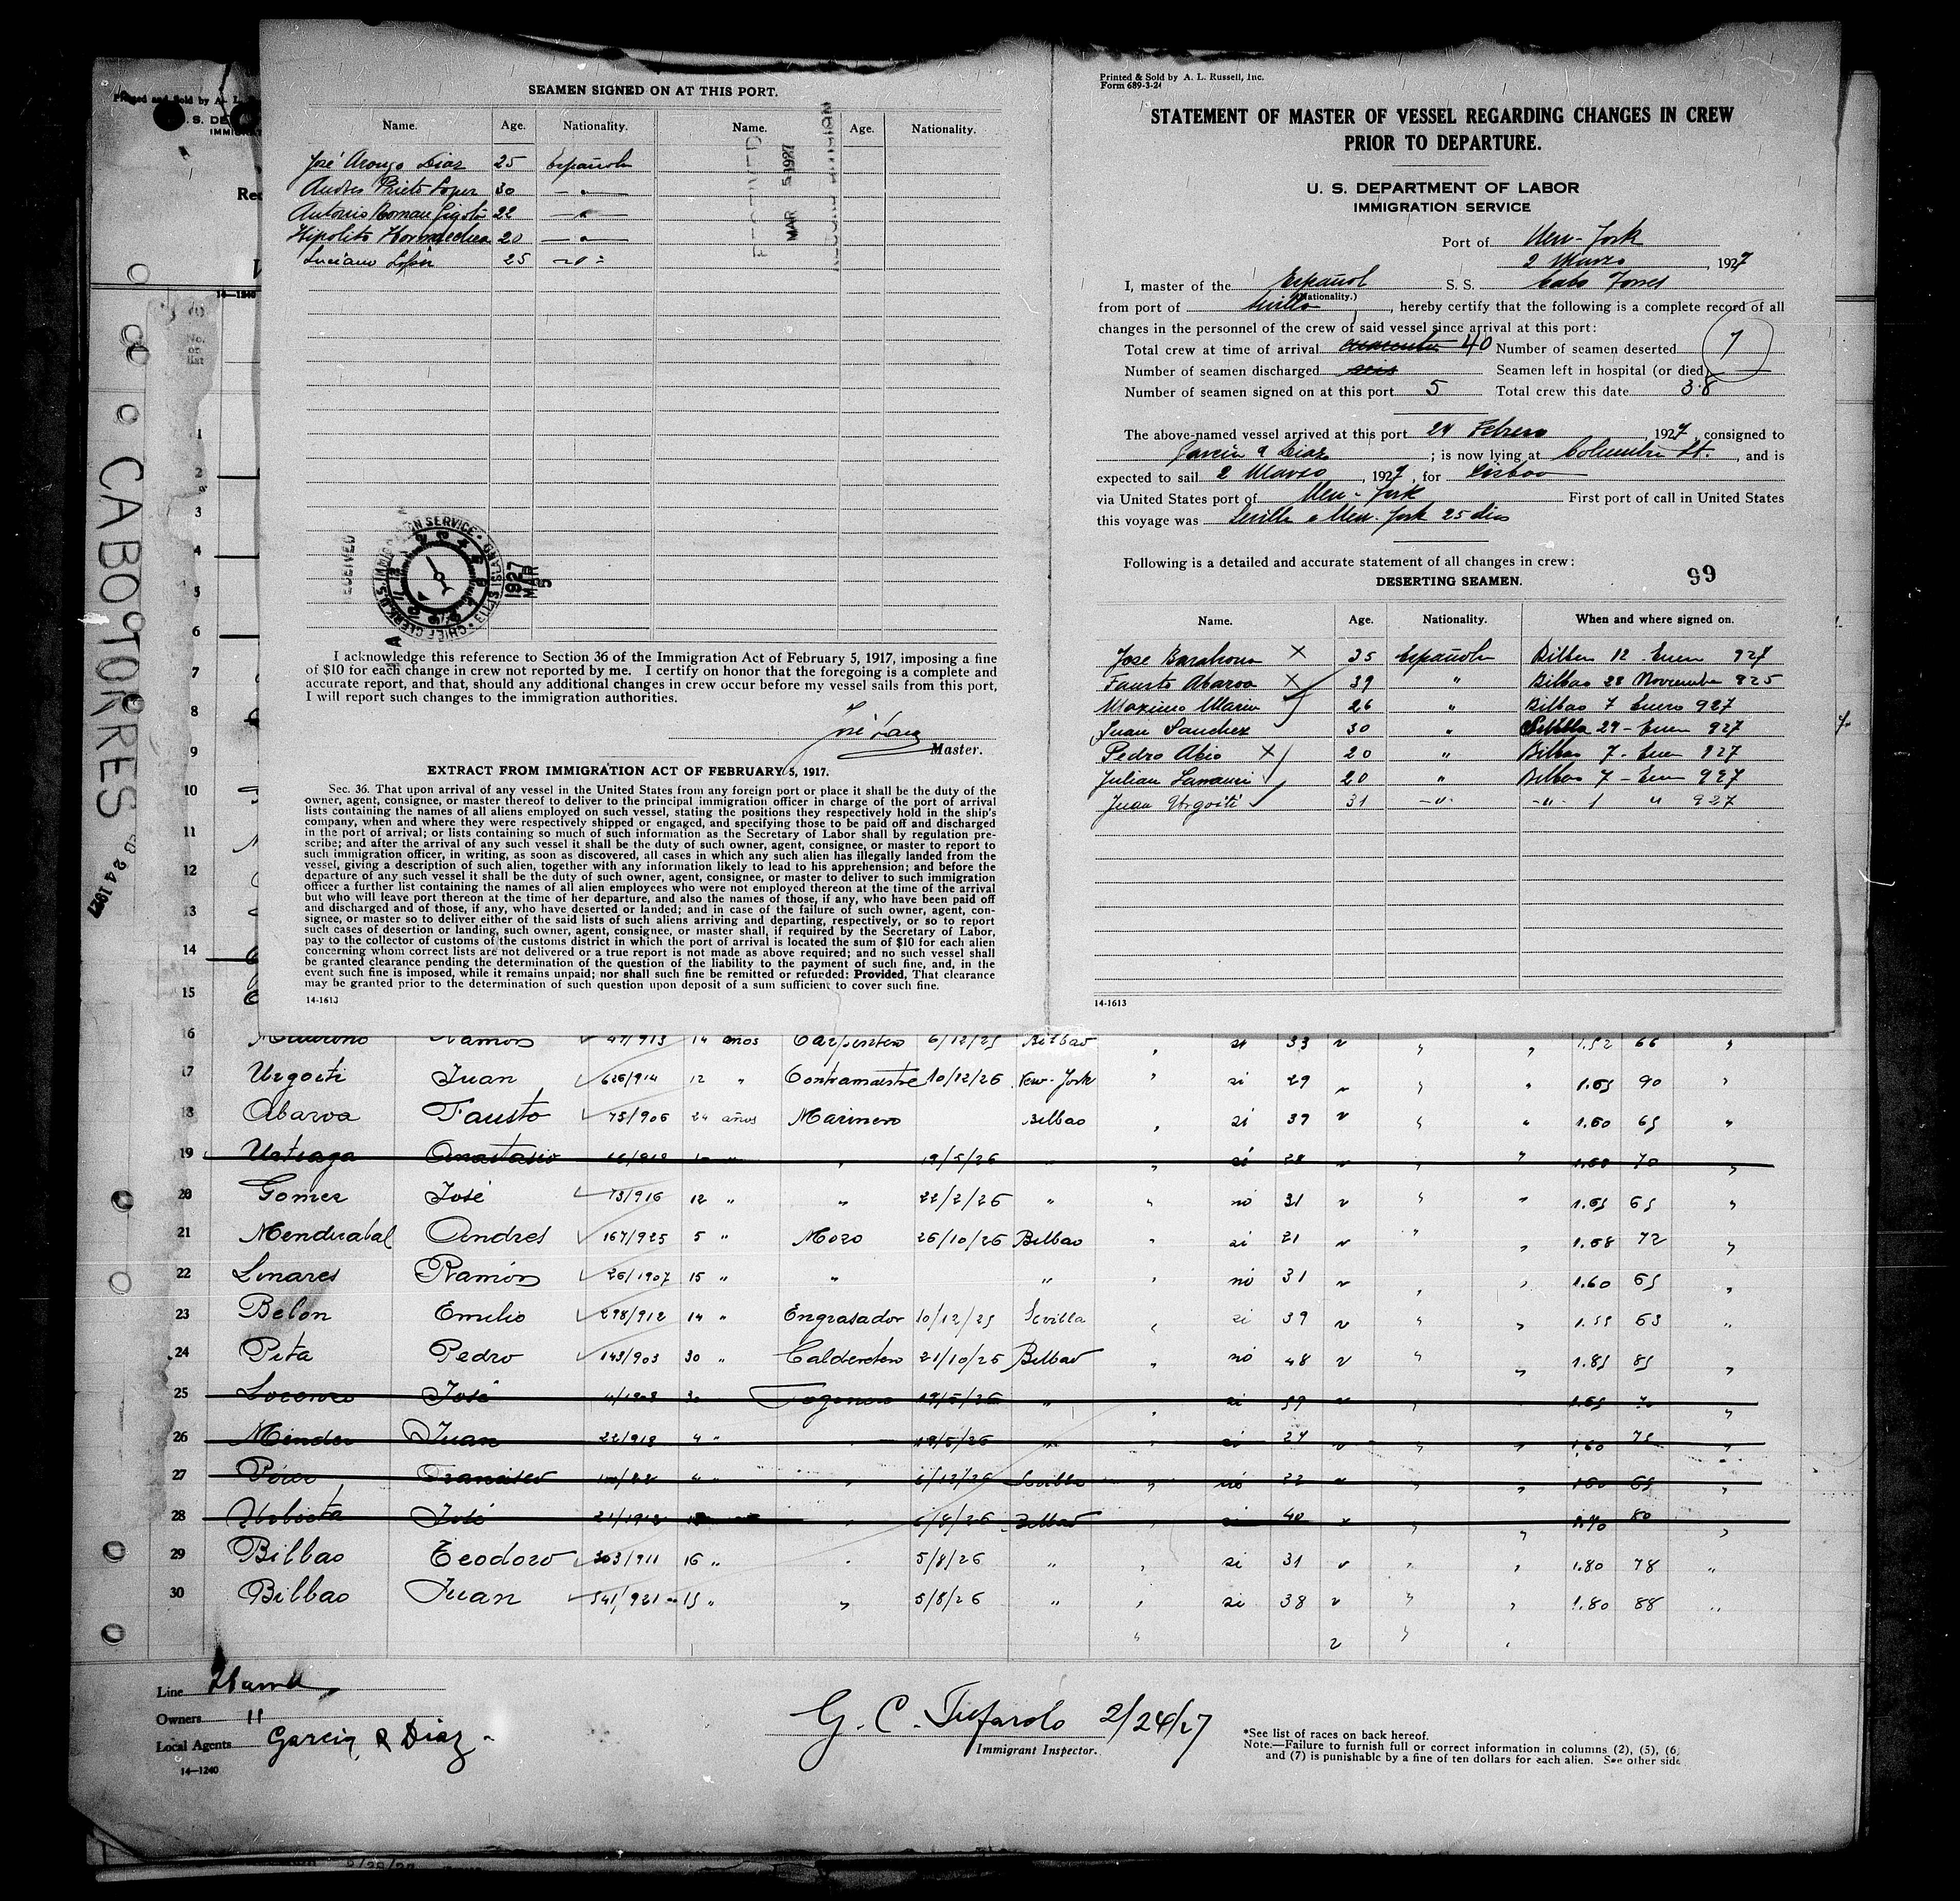 SEAMEN SIGNED ON AT THIS PORT.
Name. Age. Nationality. Name. Age. Nationality.
José Alonzo Diaz 25 Española
Andres Prieto Lopez 30 — " —
Antonio Roman 22 — " —
Hipolito 20 — " —
Luciano 25
RECEIVED
MAR 5 1927
RECORD DIVISION
I acknowledge this reference to Section 36 of the Immigration Act of February 5, 1917, imposing a fine
of $10 for each change in crew not reported by me. I certify on honor that the foregoing is a complete and
accurate report, and that, should any additional changes in crew occur before my vessel sails from this port,
I will report such changes to the immigration authorities.
Master.
EXTRACT FROM IMMIGRATION ACT OF FEBRUARY 5, 1917.
Sec. 36. That upon arrival of any vessel in the United States from any foreign port or place it shall be the duty of the
owner, agent, consignee, or master thereof to deliver to the principal immigration officer in charge of the port of arrival
lists containing the names of all aliens employed on such vessel, stating the positions they respectively hold in the ship's
company, when and where they were respectively shipped or engaged, and specifying those to be paid off and discharged
in the port of arrival; or lists containing so much of such information as the Secretary of Labor shall by regulation pre-
scribe; and after the arrival of any such vessel it shall be the duty of such owner, agent, consignee, or master to report to
such immigration officer, in writing, as soon as discovered, all cases in which any such alien has illegally landed from the
vessel, giving a description of such alien, together with any information likely to lead to his apprehension; and before the
departure of any such vessel it shall be the duty of such owner, agent, consignee, or master to deliver to such immigration
officer a further list containing the names of all alien employees who were not employed thereon at the time of the arrival
but who will leave port thereon at the time of her departure, and also the names of those, if any, who have been paid off
and discharged and of those, if any, who have deserted or landed; and in case of the failure of such owner, agent, con-
signee, or master so to deliver either of the said lists of such aliens arriving and departing, respectively, or so to report
such cases of desertion or landing, such owner, agent, consignee, or master shall, if required by the Secretary of Labor,
pay to the collector of customs of the customs district in which the port of arrival is located the sum of $10 for each alien
concerning whom correct lists are not delivered or a true report is not made as above required; and no such vessel shall
be granted clearance pending the determination of the question of the liability to the payment of such fine, and, in the
event such fine is imposed, while it remains unpaid; nor shall such fine be remitted or refunded: Provided, That clearance
may be granted prior to the determination of such question upon deposit of a sum sufficient to cover such fine.
14-1613
Printed & Sold by A. L. Russell, Inc.
Form 689-3-24
STATEMENT OF MASTER OF VESSEL REGARDING CHANGES IN CREW
PRIOR TO DEPARTURE.
U. S. DEPARTMENT OF LABOR
IMMIGRATION SERVICE
Port of New-York
2 Marzo, 1927
I, master of the Español S. S. Cabo Torres
(Nationality.)
from port of Sevilla, hereby certify that the following is a complete record of all
changes in the personnel of the crew of said vessel since arrival at this port:
Total crew at time of arrival 40 Number of seamen deserted 7
Number of seamen discharged seis Seamen left in hospital (or died) —
Number of seamen signed on at this port 5 Total crew this date 38
The above-named vessel arrived at this port 24 Febrero, 1927, consigned to
Garcia & Diaz; is now lying at Columbia St., and is
expected to sail 2 Marzo, 1927, for Lisboa
via United States port of New-York First port of call in United States
this voyage was Sevilla a New-York 25 dias
Following is a detailed and accurate statement of all changes in crew:
DESERTING SEAMEN. 99
Name. Age. Nationality. When and where signed on.
Jose Barahona X 35 Española Bilbao 12 Enero 927
Fausto Abaroa X 39 " Bilbao 28 Noviembre 925
Maximo Marin 26 " Bilbao 7 Enero 927
Juan Sanchez 30 " Sevilla 29 - Enero 927
Pedro Abio X 20 " Bilbao 7 - Enero 927
Julian 20 " Bilbao 7 - Enero 927
Juan Urgoiti 31 — " — — " — 1 " 927
14-1613
CABO TORRES
1
2
3
4
5
6
7
8
9
10
11
12
13
14
15
16 Ramon 47/913 14 años Carpintero 6/12/25 Bilbao " si 33 " " " 1.52 66 "
17 Urgoiti Juan 626/914 12 " Contramaestre 10/12/26 New-York " si 29 " " " 1.65 90 "
18 Abaroa Fausto 75/906 24 años Marinero Bilbao " si 39 " " " 1.60 65 "
19 Urteaga Anastasio 10 " " 19/5/26 " " si 28 " " " 1.60 70 "
20 Gomez José 73/916 12 " " 22/2/26 " " no 31 " " " 1.65 65 "
21 Mendizabal Andres 167/925 5 " Mozo 26/10/26 Bilbao " si 21 " " " 1.68 72 "
22 Linares Ramón 26/1907 15 " " " " no 31 " " " 1.60 65 "
23 Belon Emilio 298/912 14 " Engrasador 10/12/25 Sevilla " si 39 " " " 1.55 63 "
24 Pita Pedro 143/903 30 " Calderetero 21/10/26 Bilbao " no 48 " " " 1.85 85 "
25 Lorenzo José 4/1908 30 Fogonero 19/5/26 " " si 39 " " " 1.65 70 "
26 Mendez Juan 22/918 4 " " 19/5/26 " " si 24 " " " 1.60 75 "
27 Pérez Francisco " 6/12/26 Sevilla " no 32 " " " 1.60 65 "
28 Urbieta José 21/1918 " 6/8/26 Bilbao " si 40 " " " 1.70 80 "
29 Bilbao Teodoro 303/911 16 " " 5/8/26 " " si 31 " " " 1.80 78 "
30 Bilbao Juan 541/921 15 " " 5/8/26 " " si 38 " " " 1.80 88 "
Line Ybarra
Owners "
Local Agents Garcia & Diaz
14—1240
G. C. Tufarolo 2/24/27
Immigrant Inspector.
*See list of races on back hereof.
Note.—Failure to furnish full or correct information in columns (2), (5), (6
and (7) is punishable by a fine of ten dollars for each alien. See other side